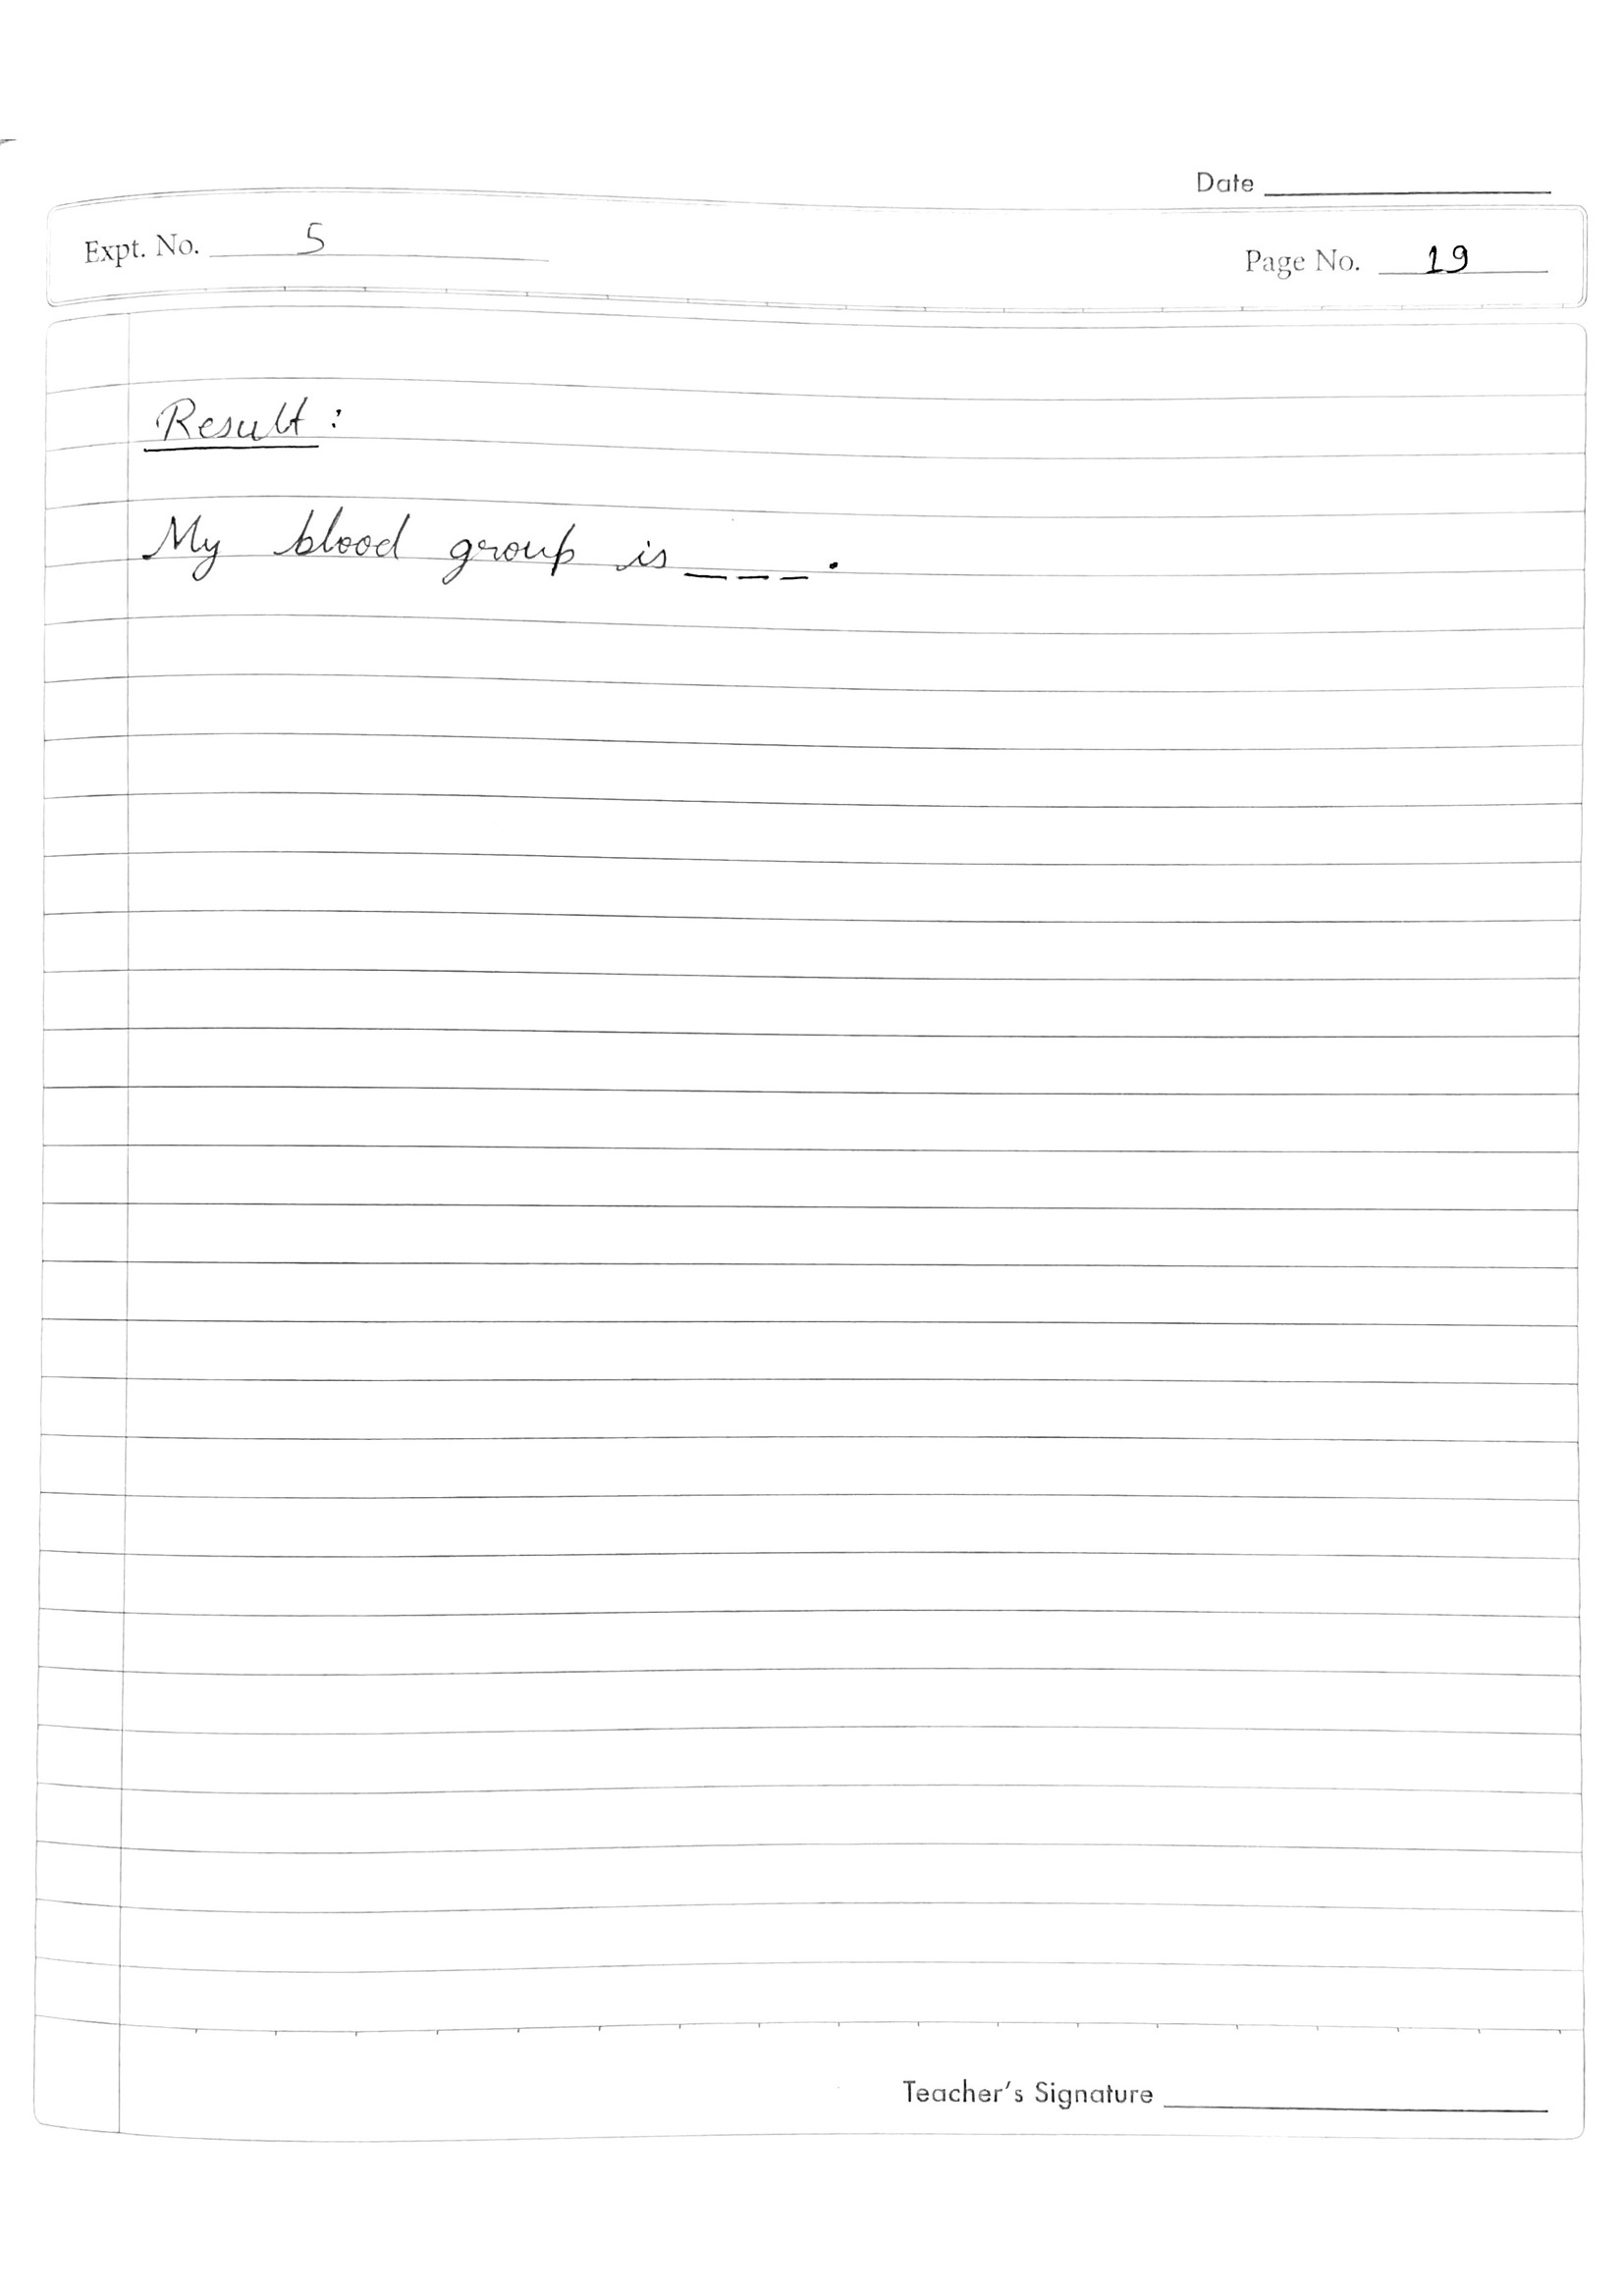 Date
Expt. No. 5
Page No. 19
Result :
My blood group is _ _ _ .
Teacher's Signature